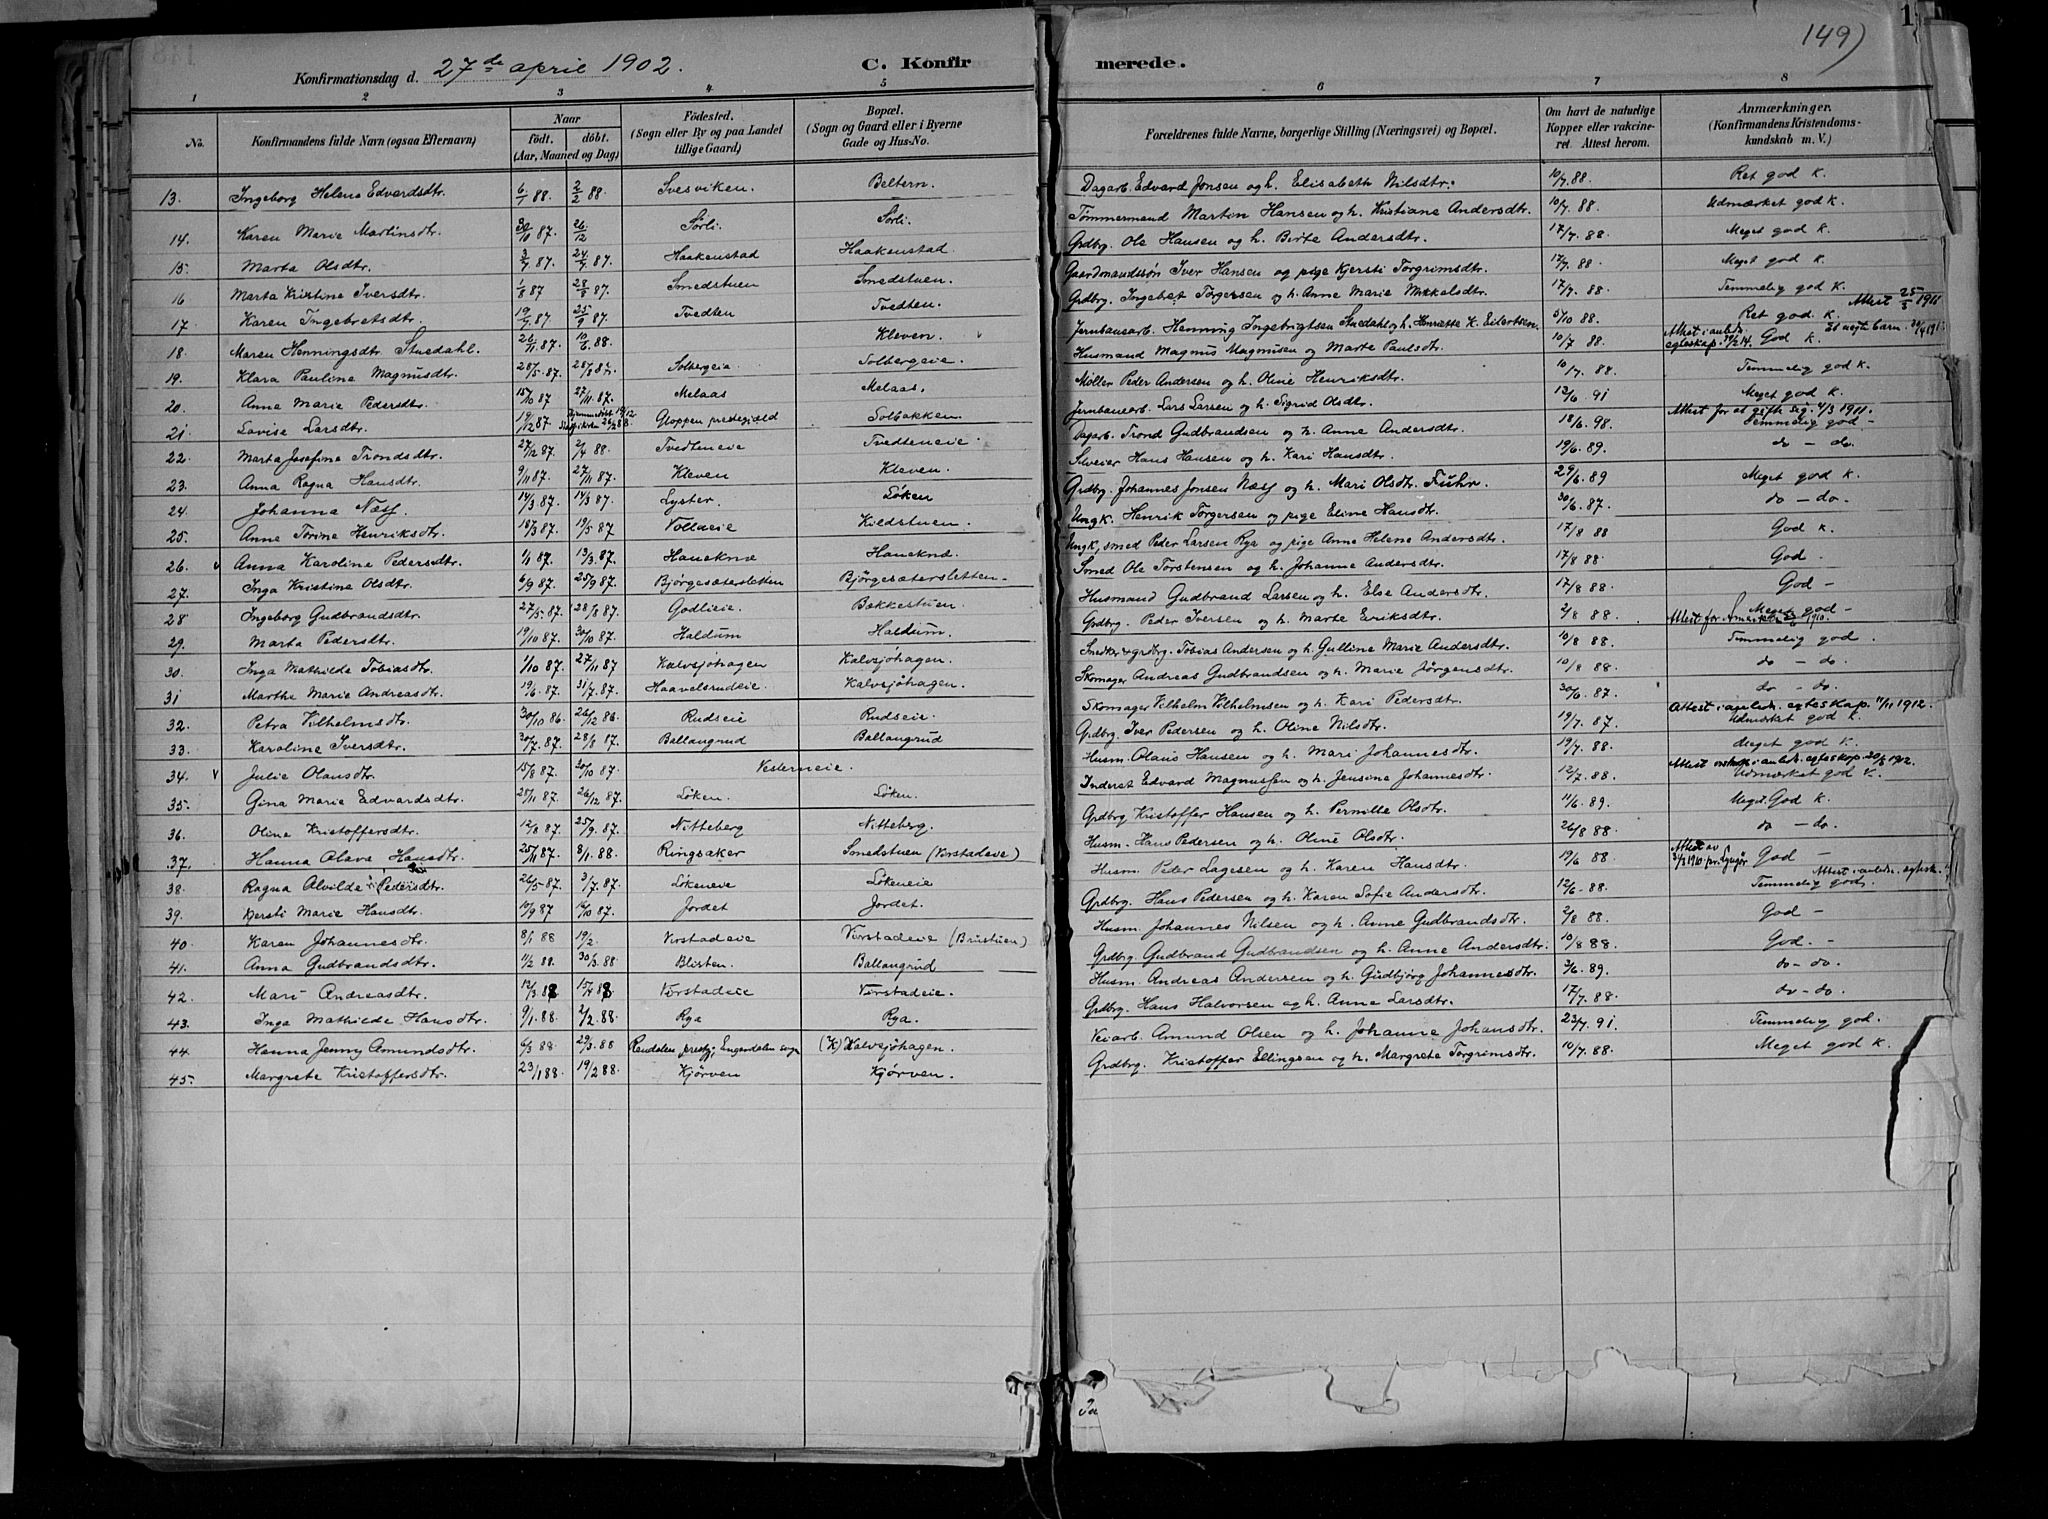 149)
Konfirmationsdag d. 27de april 1902. C. Konfirmerede.
1 2 3 4 5 6 7 8
No. Konfirmandens fulde Navn (ogsaa Efternavn) Naar født. døbt. (Aar, Maaned og Dag) Fødested. (Sogn eller By og paa Landet tillige Gaard) Bopæl. (Sogn og Gaard eller i Byerne Gade og Hus-No. Forældrenes fulde Navne, borgerlige Stilling (Næringsvei) og Bopæl. Om havt de naturlige Kopper eller vakcineret. Attest herom. Anmærkninger. (Konfirmandens Kristendomskundskab m. V.)
13. Ingeborg Helene Edvardsdtr. 6/1 88. 2/2 88. Svesviken. Beltern. Dagarb. Edvard Jonsen og h. Elisabeth Nilsdtr. 10/7. 88. Ret god K.
14. Karen Marie Martinsdtr. 30/10 87. 26/12 Sørli. Sørli. Tømmermand Martin Hansen og h. Kristiane Andersdtr. 10/7. 88. Udmærket god K.
15. Marta Olsdtr. 3/7. 87. 24/7. 87. Haakenstad Haakenstad Grdbrg. Ole Hansen og h. Berte Andersdtr. 17/7. 88. Meget god K.
16 Marta Kristine Iversdtr. 1/8 87 28/8 87. Smedstuen Smedstuen. Gaardmandssøn Iver Hansen og pige Kjersti Torgrimsdtr. 17/7. 88. Meget god K.
17. Karen Ingebretsdtr. 19/7. 87. 25/9 87. Tvedten Tvedten. Grdbrg. Ingebret Torgersen og h. Anne Marie Mikkelsdtr. 17/7. 88. Temmelig god K. Attest 25/3 1911
18. Maren Henningsdtr Stuedahl. 26/11 87. 10/6. 88. Kleven Jernbanearb. Henning Ingebrigtsen Stuedahl og h. Henriette K. Eilertsen 5/10 88. Ret god K.
19. Klara Pauline Magnusdtr. 28/5. 87. 28/8 87. Solbergeie. Solbergeie. Husmand Magnus Magnusen og Marte Paulsdtr. 10/7 88. God K.
20. Anna Marie Pedersdtr. 15/10 87 27/11. 87. Melaas Melaas. Møller Peder Andersen og h. Oline Henriksdtr. 10/7. 88. Temmelig god K.
21. Lovise Larsdtr. 19/12 87 Gloppen prestegjæld Solbakken Jernbanearb. Lars Larsen og h. Sigrid Olsdtr. 13/6. 91 Meget god K.
22. Marta Josefine Trondsdtr. 27/12 87. 2/4 88. Tvedteneie Tvedteneie. Dagarb. Trond Gudbrandsen og h. Anne Andersdtr. 18/6. 98. Attest for at gifte sig 4/3 1911. Temmelig god –
23. Anna Ragna Hansdtr. 9/11 87. 27/11 87. Kleven Kleven. Selveier Hans Hansen og h. Kari Hansdtr. 19/6. 89. do – do.
24. Johanna Næss 14/3 87. 14/3 87. Lyster Løken Grdbrg. Johannes Jonsen Næss og h. Mari Olsdtr. Fuhr. 29/6. 89 Meget god K.
25. Anne Torine Henriksdtr. 18/3 87. 19/5 87 Volldeie Kildstuen. Ungk. Henrik Torgersen og pige Eline Hansdtr. 30/6. 87. do – do.
26. v Anna Karoline Pedersdtr. 1/1 87. 13/3. 87. Hanekne Hanekne. Ungk, smed Peder Larsen Rya og pige Anne Helene Andersdtr. 17/8 88 God K.
27. Inga Kristine Olsdtr. 6/9 87. 25/9 87. Bjørgesætersletten Bjørgesætersletten Smed Ole Torstensen og h. Johanne Andersdtr. 17/8 88. God.
28 Ingeborg Gudbrandsdtr. 27/5. 87. 28/8 87. Godlieie. Bakkestuen. Husmand Gudbrand Larsen og h. Else Andersdtr. 17/8 88. God –
29. Marta Pedersdtr. 19/10 87. 30/10 87. Haldum Haldum. Grdbrg. Peder Iversen og h. Marte Eriksdtr. 2/8 88. Meget god –
30. Inga Mathilde Tobiasdtr. 1/10 87. 27/11 87. Kalvsjøhagen Kalvsjøhagen. Snedker & grdbrg. Tobias Andersen og h. Gulline Marie Andersdtr. 10/8 88. Temmelig god.
31 Marthe Marie Andreasdtr. 19/6. 87. 31/7. 87. Haavelsrudeie. Kalvsjøhagen. Skomager Andreas Gudbrandsen og h. Marie Jørgensdtr. 10/8 88. do – do.
32. Petra Vilhelmsdtr. 30/10 86. 26/12 86. Rudseie Rudseie. Skomager Vilhelm Vilhelmsen og h. Kari Pedersdtr. 30/6. 87. do – do.
33. Karoline Iversdtr. 30/7. 87. 28/8 87. Ballangrud Ballangrud Grdbrg. Iver Pedersen og h. Oline Nilsdtr. 19/7. 87. Attest i anledn. egteskap. 11/11 1912. Udmerket god K.
34. v Julie Olausdtr. 15/8 87. 30/10 87. Vesterneie. Husm. Olaus Hansen og h. Mari Johannesdtr. 19/7. 88. Meget god K.
35. Gina Marie Edvardsdtr. 28/11 87. 26/12 87. Løken. Løken. Inderst Edvard Magnussen og h. Jensine Johannesdtr. 12/7. 88. Udmerket god K.
36. Oline Kristoffersdtr. 12/8 87. 25/9. 87. Nitteberg Nitteberg. Grdbrg Kristoffer Hansen og h. Pernille Olsdtr. 11/6. 89. Meget God K.
37. Hanna Olava Hansdtr. 25/11 87. 8/1. 88. Ringsaker Smedstuen (Virstadeie) Husm. Hans Pedersen og h. Oline Olsdtr. 26/8 88. do – do.
38. Ragna Alvilde Pedersdtr. 26/5. 87. 3/7. 87. Løkeneie Løkeneie Husm. Peder Lagesen og h. Karen Hansdtr. 19/6 88. God –
39. Kjersti Marie Hansdtr. 10/9 87 16/10 87. Jordet Jordet. Grdbrg. Hans Pedersen og h. Karen Sofie Andersdtr. 12/6. 88. Temmelig god.
40. Karen Johannesdtr. 8/1 88 19/2. Virstadeie Virstadeie (Brustuen) Husm. Johannes Nilsen og h. Anne Gudbrandsdtr. 2/8 88. God –
41. Anna Gudbrandsdtr. 11/2 88. 30/3. 88. Blisten. Ballangrud Grdbrg. Gudbrand Gudbrandsen og h. Anne Andersdtr. 10/8 88. God. –
42. Mari Andreasdtr. 12/3 88 15/4 88 Virstadeie Virstadeie. Husm. Andreas Andersen og h. Gudbjørg Johannesdtr. 3/6. 89. do – do.
43. Inga Mathilde Hansdtr. 9/1. 88. 2/2. 88. Rya Rya. Grdbrg. Hans Halvorsen og h. Anne Larsdtr. 17/7. 88. do – do.
44. Hanna Jenny Amundsdtr. 6/3 88. 29/3. 88 Rendalen prestgj. Engerdalen sogn (K) Kalvsjøhagen. Veiarb. Amund Olsen og h. Johanne Johansdtr. 23/7. 91. Temmelig god.
45. Margrete Kristoffersdtr. 23/1 88. 19/2 88. Kjørven Kjørven. Grdbrg. Kristoffer Ellingsen og h. Margrete Torgrimsdtr. 10/7. 88. Meget god K.